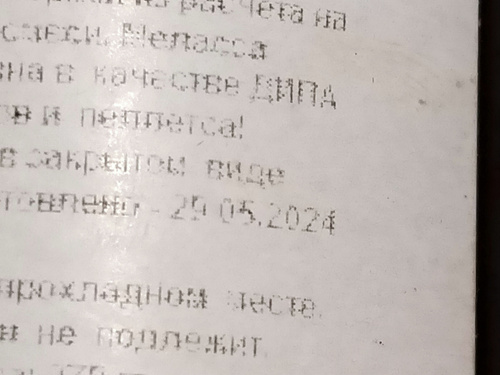 расчета на
смеси. Меласса
на в качестве ДИПА
в и пеллетса!
в закрытом виде
товлено - 29.05.2024
прохладном месте.
и не подлежит